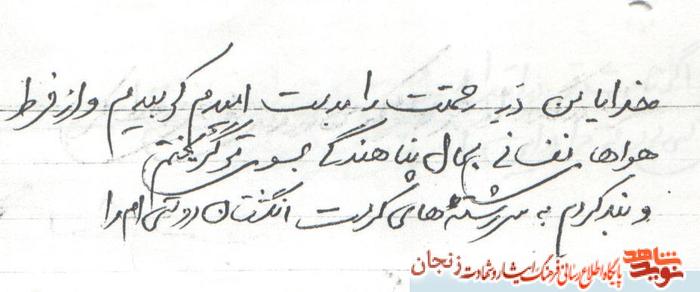 خدایا من در رحمتت را بدست امیدم کوبیدم و از فرط
هواهای نفسانی بحال پناهندگی بسوی تو گریختم
و بند کردم به سررشته‌های کرمت انگشتان دوستی ام را
نوید شاهد
پایگاه اطلاع رسانی فرهنگ ایثار و شهادت زنجان